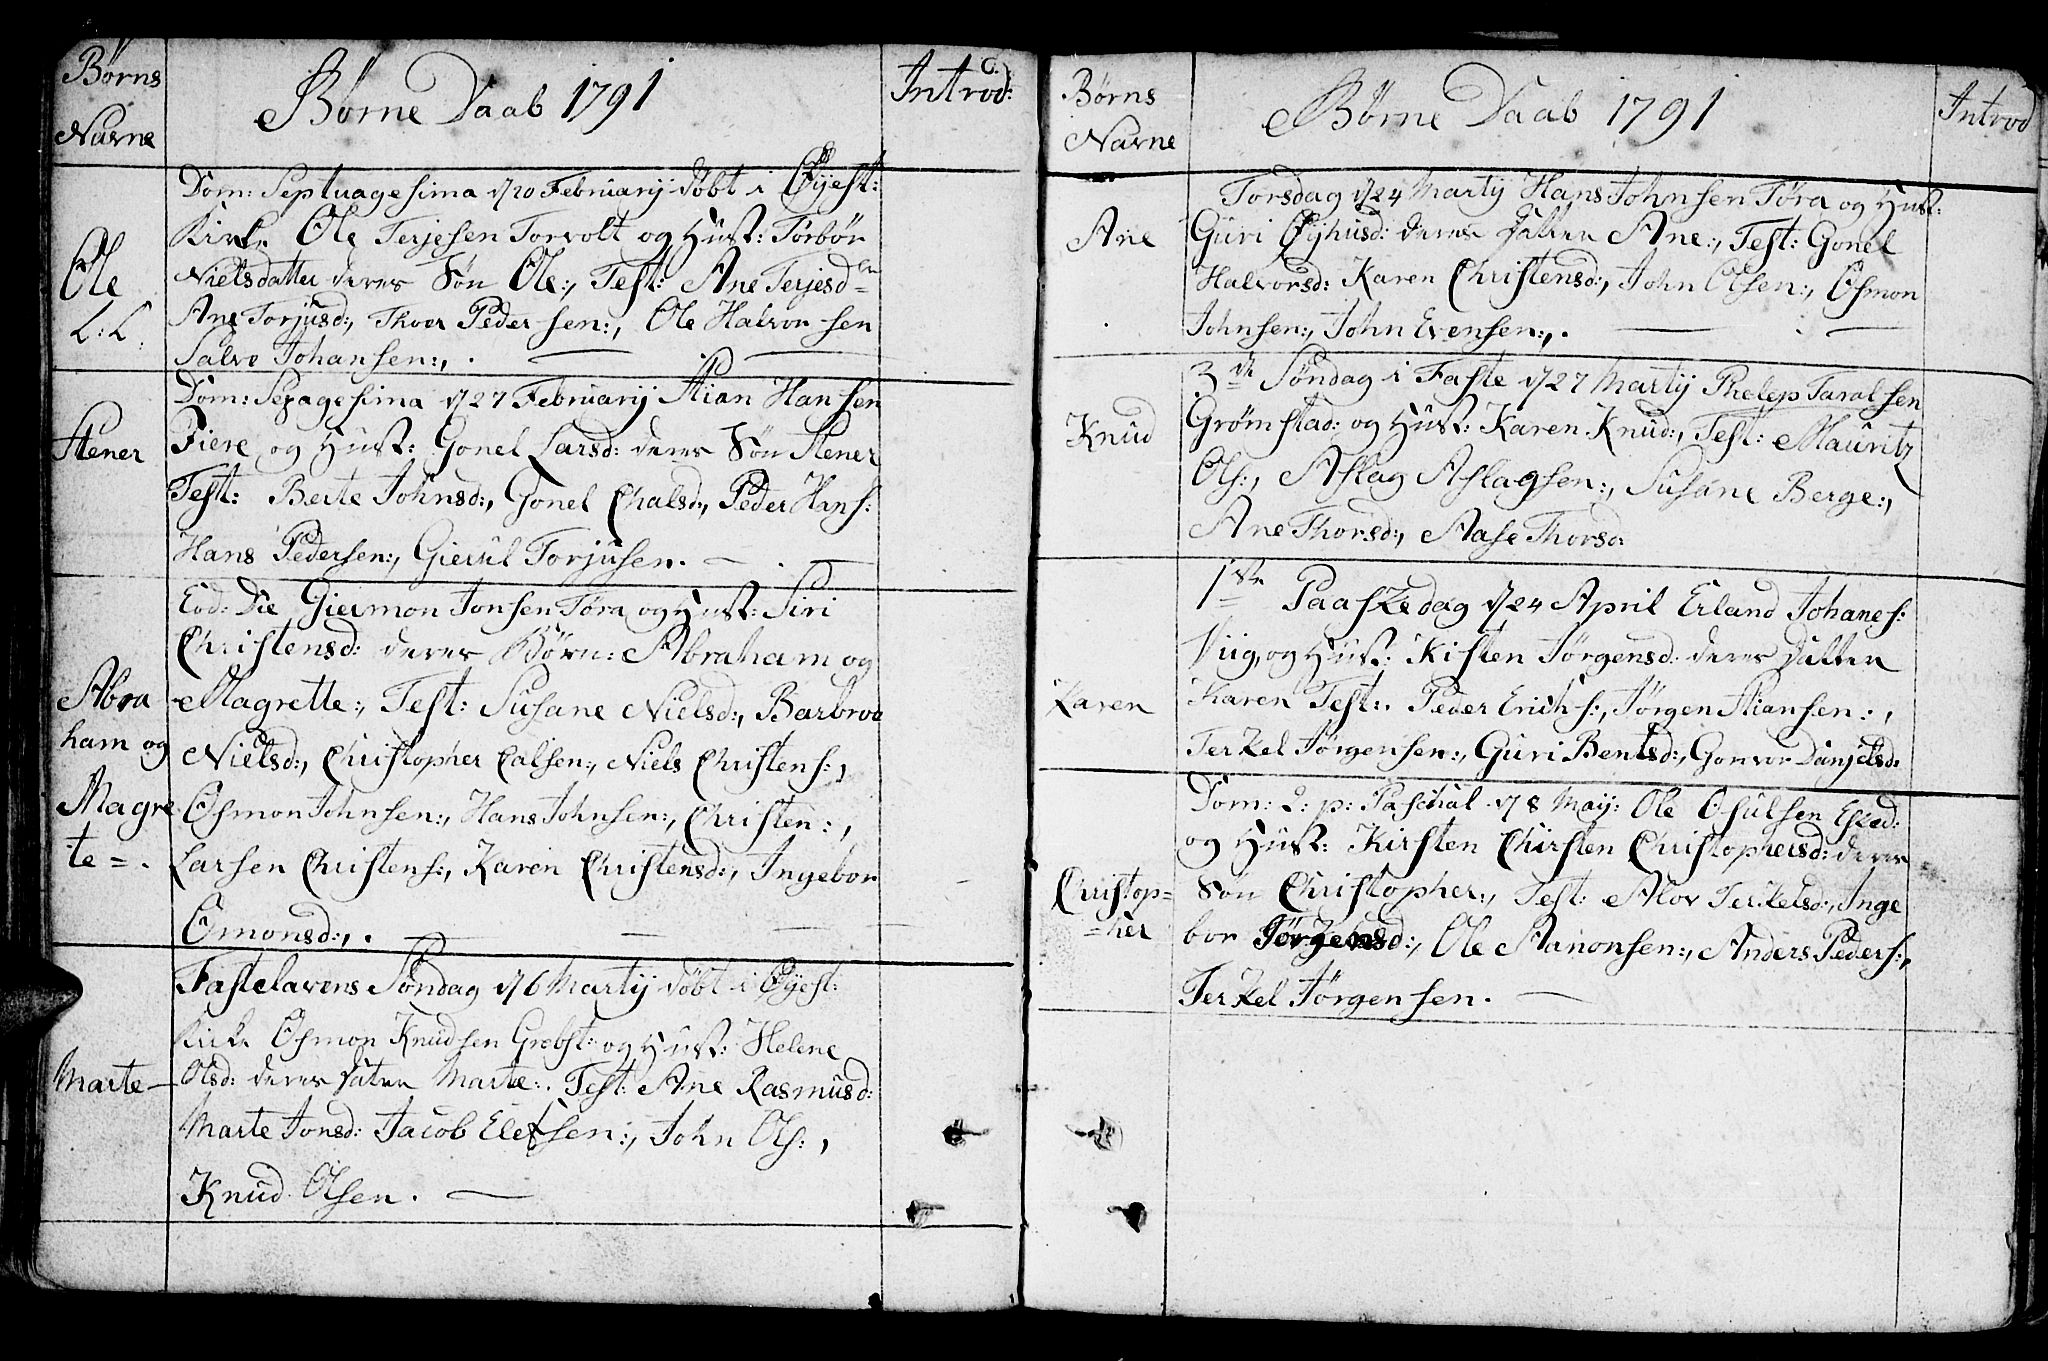 Børns
Navne
Børne Daab 1791
Introd:
Ole
L: L.
Dom: Septuagesima d/20 Februarij døbt i Øyest:
Kirke Ole Terjesen Torvolt og Hust: Torbør
Nielsdatter deres Søn Ole:, Test: Ane Terjesd
Ane Torjusd:, Thoer Pedersen:, Ole Halvorsen
Salve Johansen:,.
Stener
Dom: Sexagesima d/27 Februarij Stian Hansen
Fiere og Hust: Gonel Larsd: deres Søn Stener
Test: Berte Johnsd:, Gonel Chalsd:, Peder Hans:
Hans Pedersen:, Giersul Torjusen.
Abra
ham og
Magre
te =.
Eod: Die Giermon Jonsen Tøra og Hust: Siri
Christensd: deres Børn: Abraham og
Magrette:, Test: Susane Nielsd:, Barbroa
Nielsd:, Christopher Calsen:, Niels Christens:,
Osmon Johnsen:, Hans Johnsen:, Christen:,
Larsen Christens:, Karen Christensd:, Ingebor
Omonsd:,.
Marte
Fastelavens Søndag d/6 Martij døbt i Øyest:
Kirke Osmon Knudsen Grobst: og Hust: Helene
Olsd: deres Datter Marte:. Test: Ane Rasmusd:
Marte Jonsd: Jacob Elefsen:, John Ols:,
Knud Olsen.
Børns
Navne
Børne Daab 1791
Introd
Ane
Torsdag d/24 Martij Hans Johnsen Tøra og Hust:
Guri Øyhusd: deres Datter Ane:, Test: Gonel
Halvorsd: Karen Christensd:, John Olsen:, Osmon
Johnsen:, John Evensen:,.
Knud
3de Søndag i Faste d/27 Martij Phelep Taralsen
Grømstad: og Hust: Karen Knud:, Test: Mauritz
Ols:, Aslag Aslagsen:, Susane Berge:,
Ane Thorsd:, Aase Thorsd:
Karen
1ste Paaskedag d/24 April Erland Johanes:
Viig, og Hust: Kisten Jørgensd: deres Datter
Karen Test:. Peder Erichs:, Jørgen Stiansen:,
Terkel Jørgensen:, Guri Bentsd:, Gonvor Danjelsd:
Christop=
=her
Dom: 2: p: Paschal d/8 Maij: Ole Osulsen Esked:
og Hust: Kirsten Chirsten Christophersd: deres
Søn Christopher:, Test: Alov Terkelsd:, Inge
bor Jørgensd:, Ole Aanonsen:, Anders Peders:,
Terkel Jørgensen.